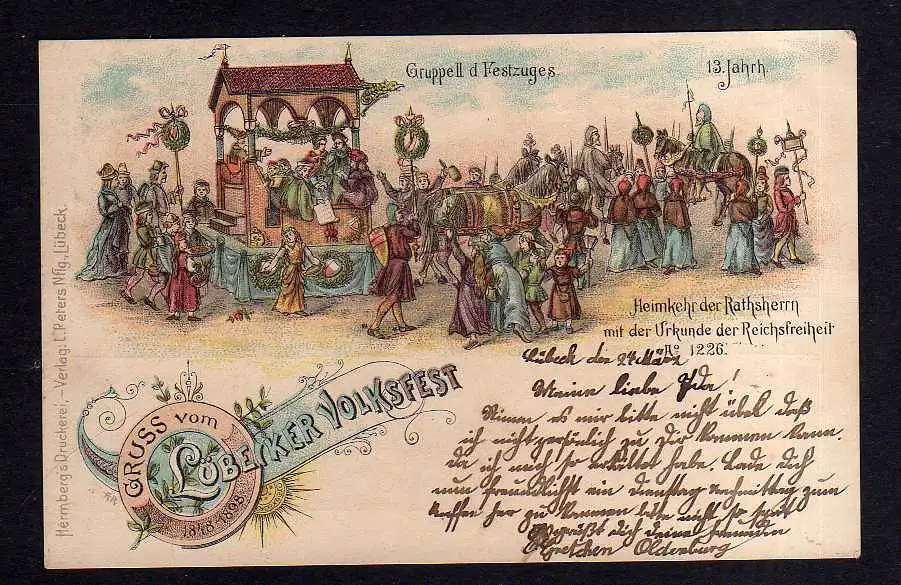 Gruppe II d Festzuges.
13. Jahrh.
Heimkehr der Rathsherrn
mit der Urkunde der Reichsfreiheit
Ao 1226.
GRUSS vom
LÜBECKER VOLKSFEST
1848-1898
Hermberg's Druckerei. – Verlag: L. Peters Nflg., Lübeck.
Lübeck den 24 März
Meine liebe Ida!
Nimm es mir bitte nicht übel daß
ich nicht persönlich zu Dir kommen kann.
da ich mich so erkältet habe. Lade Dich
nun freundlichst ein Dienstag nachmittag zum
Kaffee her zu kommen bitte nicht so spät
Es grüßt dich deine Freundin
Gretchen Oldenburg